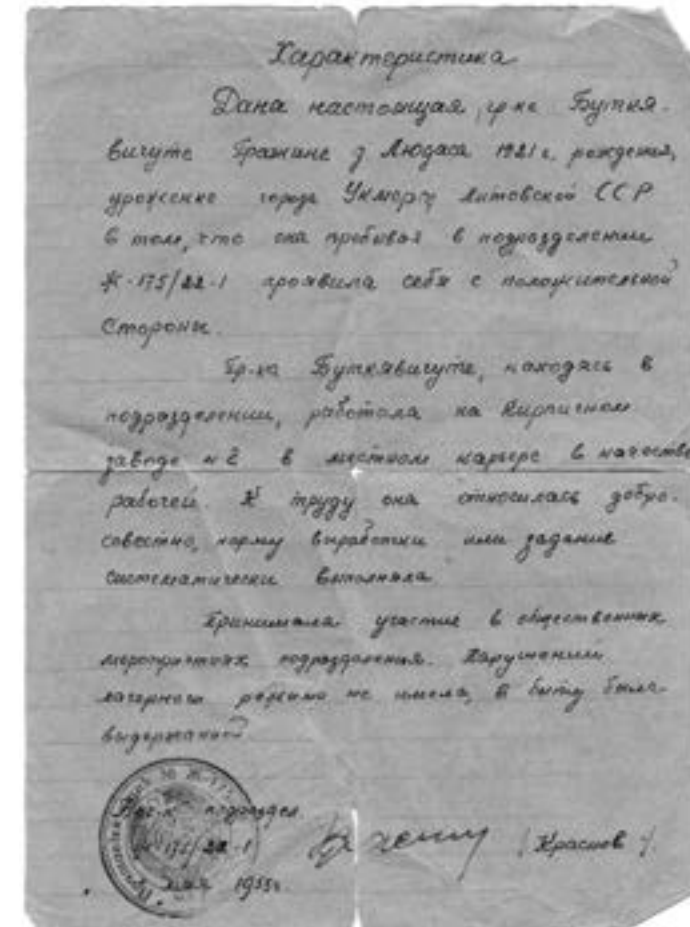 Характеристика
Дана настоящая, гр-ке Буткя-
вичуте Гражине д Людаса 1921 г. рождения,
уроженке города Укмерг Литовской ССР
в том, что она пребывая в подразделении
Ж-175/22-1 проявила себя с положительной
Стороны.
Гр-ка Буткявичуте, находясь в
подразделении, работала на Кирпичном
заводе №2 в местном карьере в качестве
рабочей. К труду она относилась добро-
совестно, норму выработки или задание
систематически выполняла.
Принимала участие в общественных
мероприятиях подразделения. Нарушений
лагерного режима не имела, в быту была
выдержанной
Нач-к подраздел.
Ж-175/22-1 /Краснов/.
мая 1955г.